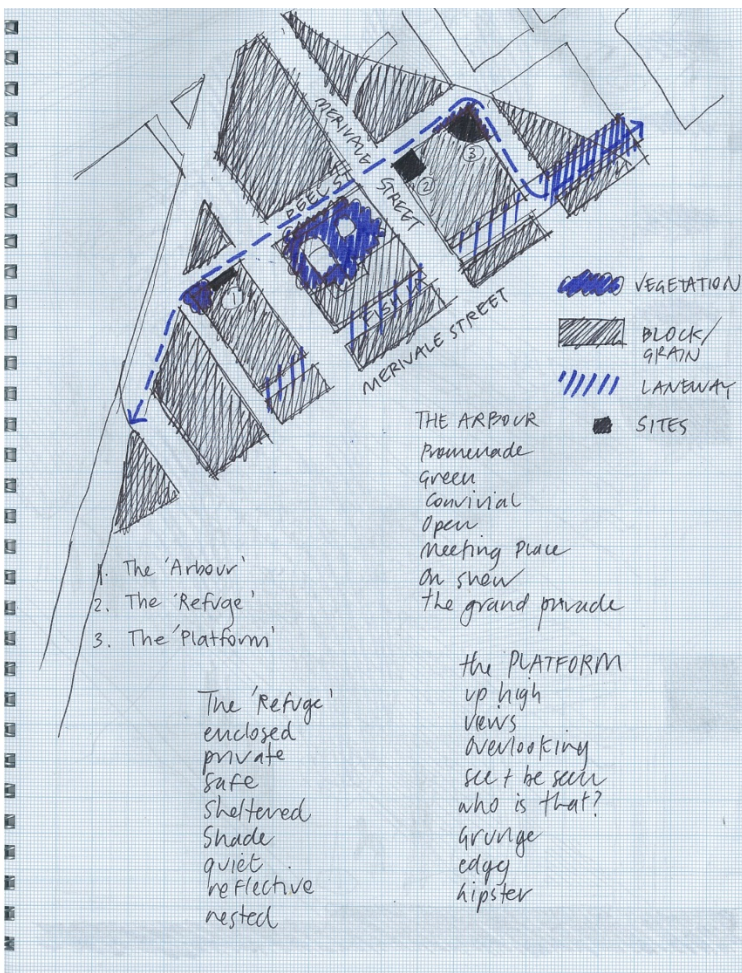 MERIVALE
STREET
PEEL ST
3
2
1
FISH
MERIVALE STREET
VEGETATION
BLOCK/
GRAIN
LANEWAY
SITES
THE ARBOUR
Promenade
Green
Convivial
Open
Meeting Place
On show
the grand
1. The 'Arbour'
2. The 'Refuge'
3. The 'Platform'
The 'Refuge'
enclosed
private
safe
Sheltered
Shade
quiet
reflective
nested
the PLATFORM
up high
views
Overlooking
see + be seen
who is that?
Grunge
edgy
hipster